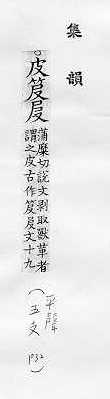 集韻
○皮
蒲糜切說文剝取獸革者
謂之皮古作文十九
平聲
(五支 P32)